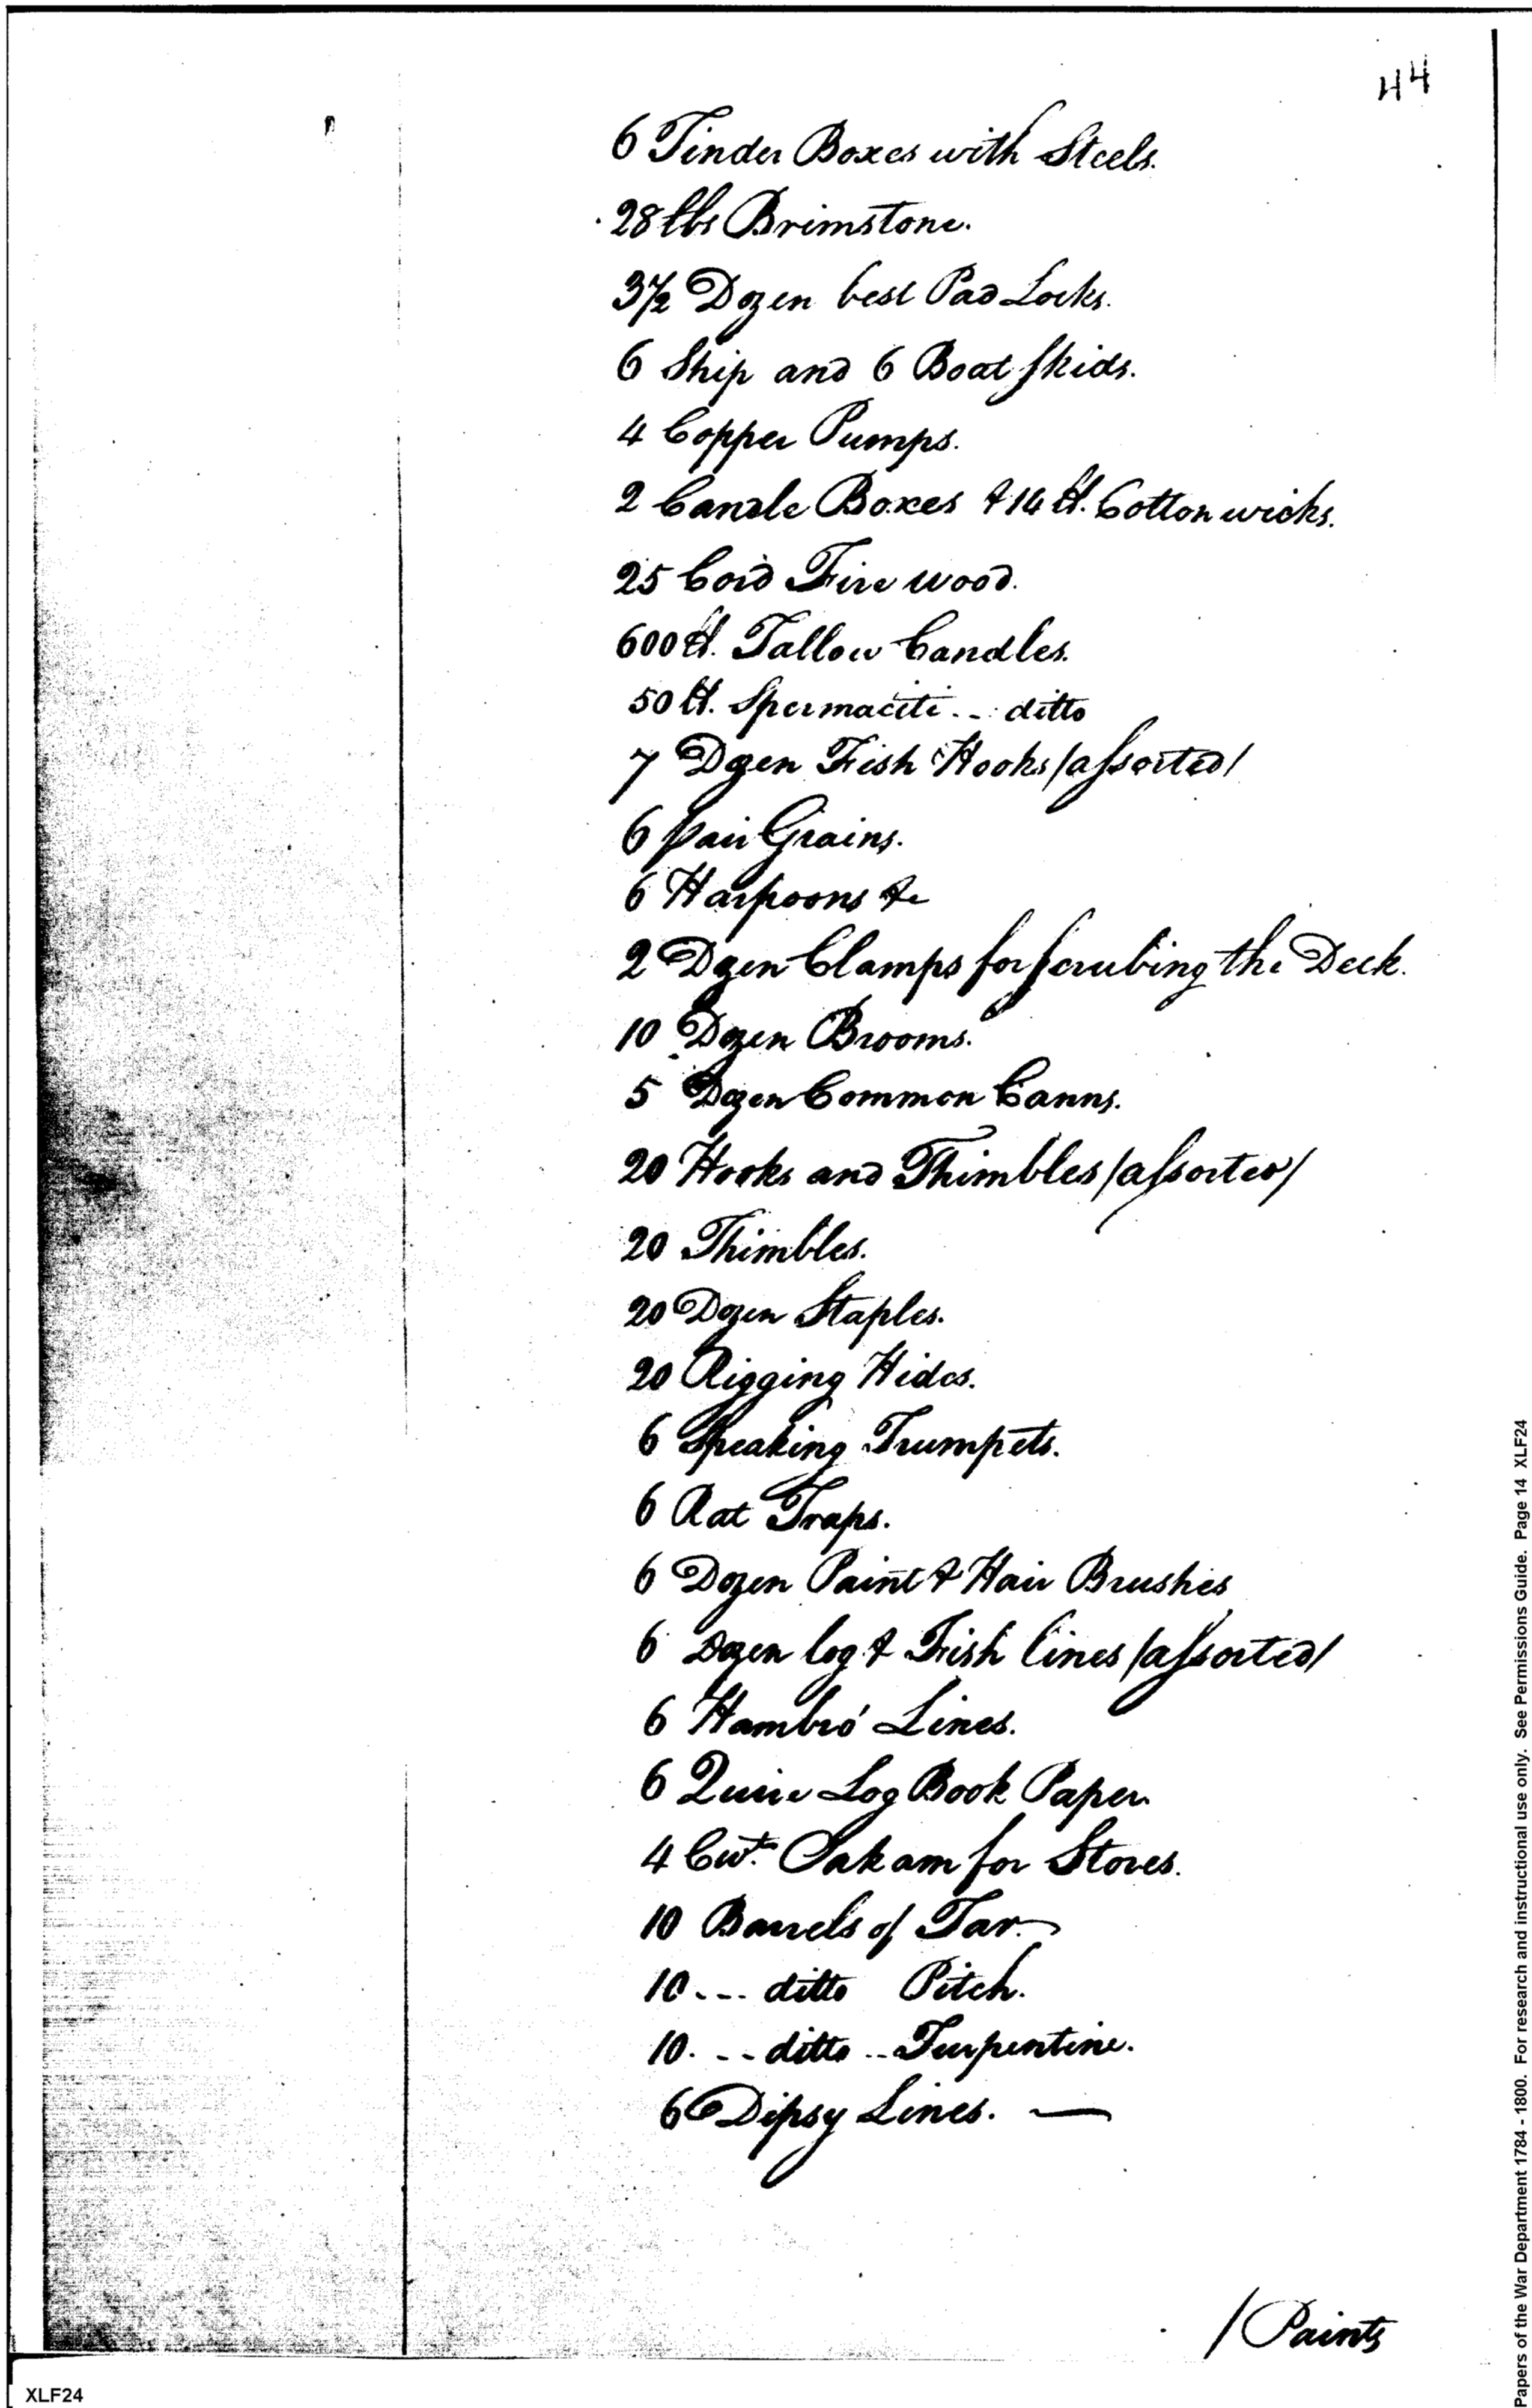 44
6 Tinder Boxes with Steels.
28 lbs Brimstone.
3 1/2 Dozen best Pad Locks.
6 Ship and 6 Boat skids.
4 Copper Pumps.
2 Candle Boxes & 14 lb. Cotton wicks.
25 Cord Fire wood.
600 lb. Tallow Candles.
50 lb. Spermaciti - - ditto
7 Dozen Fish Hooks /assorted/
6 pair Grains.
6 Harpoons &c
2 Dozen Clamps for scrubing the Deck.
10 Dozen Brooms.
5 Dozen Common Canns.
20 Hooks and Thimbles /assorted/
20 Thimbles.
20 Dozen Staples.
20 Rigging Hides.
6 Speaking Trumpets.
6 Rat Traps.
6 Dozen Paint & Hair Brushes
6 Dozen log & Fish lines /assorted/
6 Hambro' Lines.
6 Quire Log Book Paper.
4 Cwt. Oakam for Stores.
10 Barrels of Tar.
10 - - - ditto Pitch.
10. - - ditto - - Turpentine.
6 Dipsy Lines. —
/Paints
Papers of the War Department 1784 - 1800. For research and instructional use only. See Permissions Guide. Page 14 XLF24
XLF24